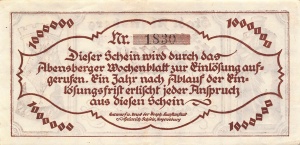 1000000
1000000
Nr. 1830
Dieser Schein wird durch das
Abensberger Wochenblatt zur Einlösung auf-
gerufen. Ein Jahr nach Ablauf der Ein-
lösungsfrist erlischt jeder Anspruch
aus diesen Schein
1000000
1000000